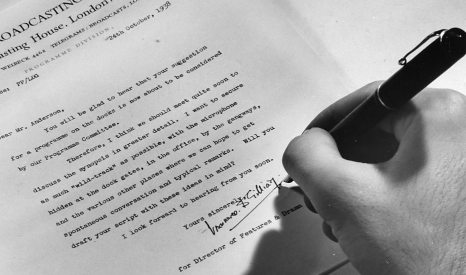 ROADCASTING
asting House, London
WELBECK 4468 TELEGRAMS, BROADCASTS, LO
PROGRAMME DIVISION,
24th October, 1938
ce: PP/LNG
ear Mr. Anderson,
You will be glad to hear that your suggestion
for a programme on the docks is now about to be considered
by our Programme Committee.
Therefore, I think we should meet quite soon to
discuss the synopsis in greater detail. I want to secure
as much "wild-track" as possible, with the microphone
hidden at the dock gates, in the office, by the gangways,
and the various other places where we can hope to get
spontaneous conversation and typical remarks. Will you
draft your script with these ideas in mind?
I look forward to hearing from you soon.
Yours sincerely,
for Director of Features & Drama